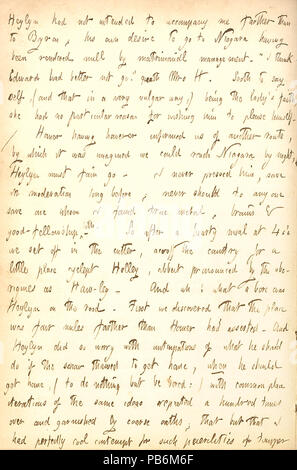 Heylyn had not intended to accompany me farther than
to Byron, his own desire to go to Niagara having
been rendered null by matrimonial management. "I think
Edward had better not go!" quoth Mrs H. Sooth to say
self (and that in a very vulgar way) being the lady's
she had no particular reason for wishing him to please himself.
Hower having however informed us of another route,
by which it was imagined we could reach Niagara by night,
Heylyn must fain go. I never pressed him, save
in moderation long before, never should to any one
save one whom I found true metal, brains &
good-fellowship. So after a hearty meal at 4
we set off in the cutter, across the country for a
little place yclept Holley, about pronounced by the
as Haw-ley. And oh! what a bore was
Heylyn on the road. First we discovered that the place
was four miles farther than Hower had asserted. And
Heylyn did so worry with anticipations of what he should
do if the snow thawed to get home, when he should
get home, (to do nothing but be bored!) with common place
iterations of the same ideas repeated a hundred times
over and garnished by coarse oaths, that but that I
had perfectly cool contempt for such puerilities of
alamy
PB6M6F